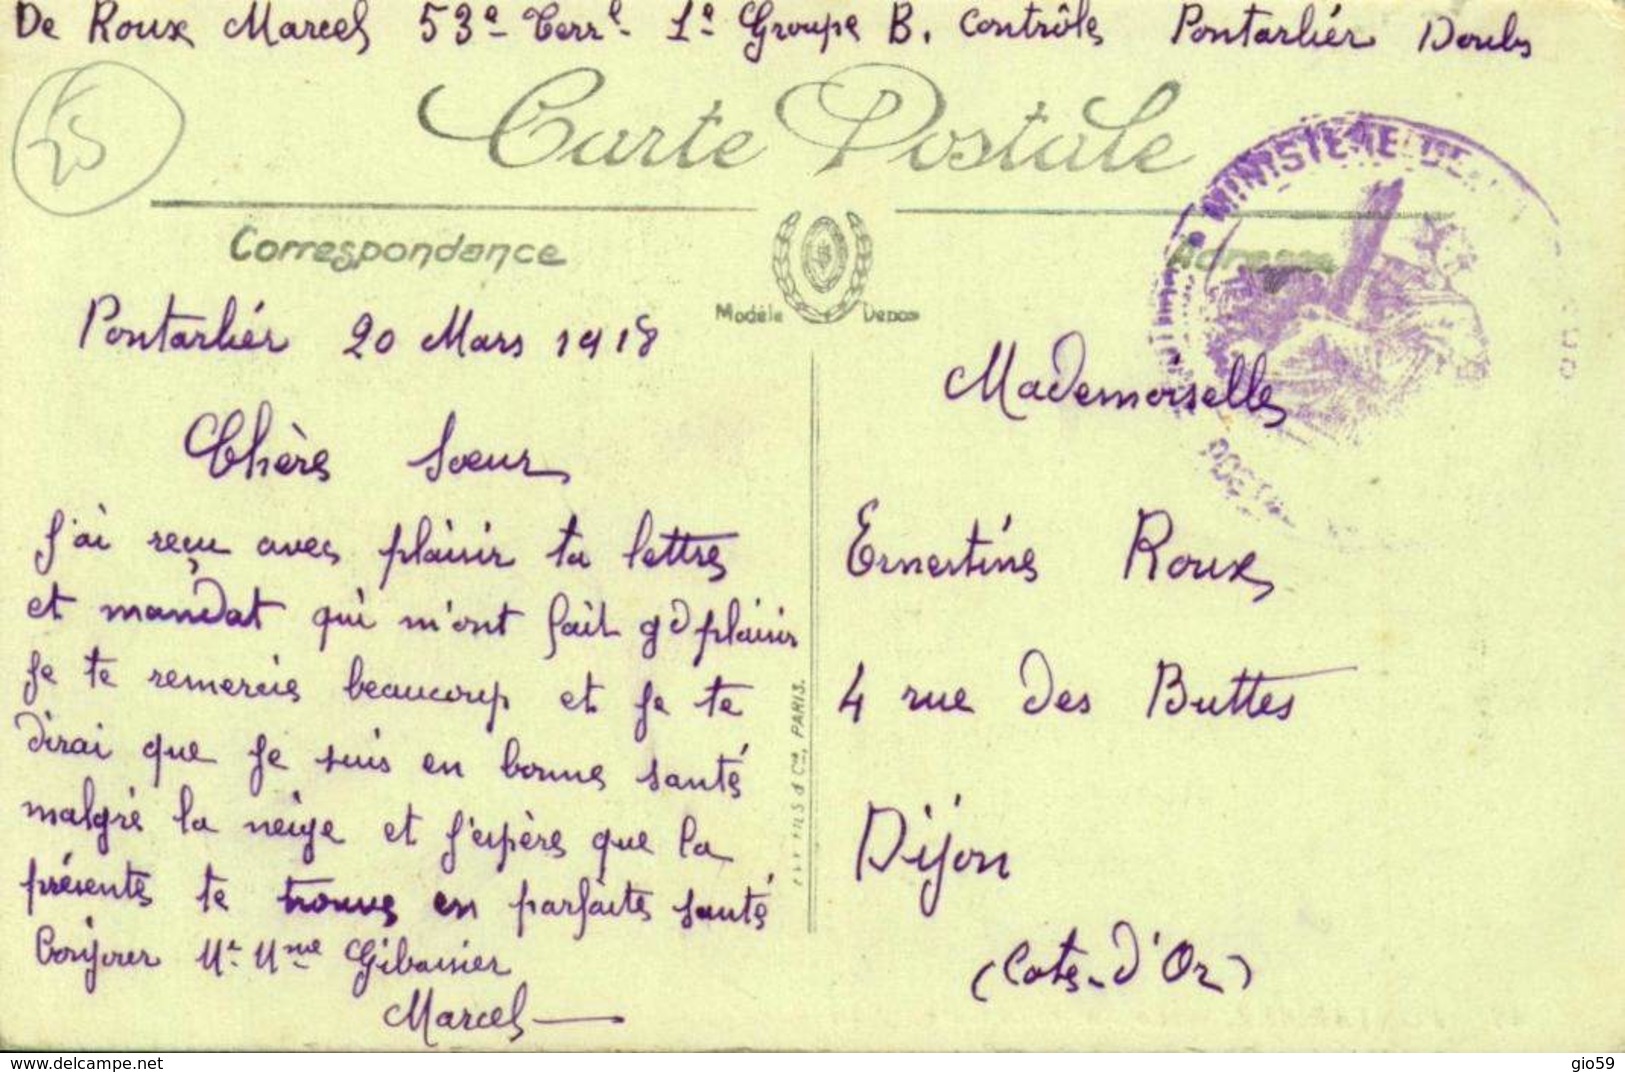 De Roux Marcel 53e Terrl 1e Groupe B. Contrôle Pontarliér Doubs
Carte Postale
Correspondance
Adresse
Modèle Déposé
MINISTERE DE
POSTAL
Pontarliér 20 Mars 1918
Chère Soeur
J'ai reçu avec plaisir ta lettre
et mandat qui m'ont fait gd plaisir
Je te remercie beaucoup et Je te
dirai que Je suis en bonne santé
malgré la neige et J'espère que la
présente te trouve en parfaite santé
Bonjour Mr Mme Gibassier
Marcel
FILS & Cie, PARIS.
Mademoiselle
Ernestine Roux
4 rue des Buttes
Dijon
(Cote-d'Or)
gio59